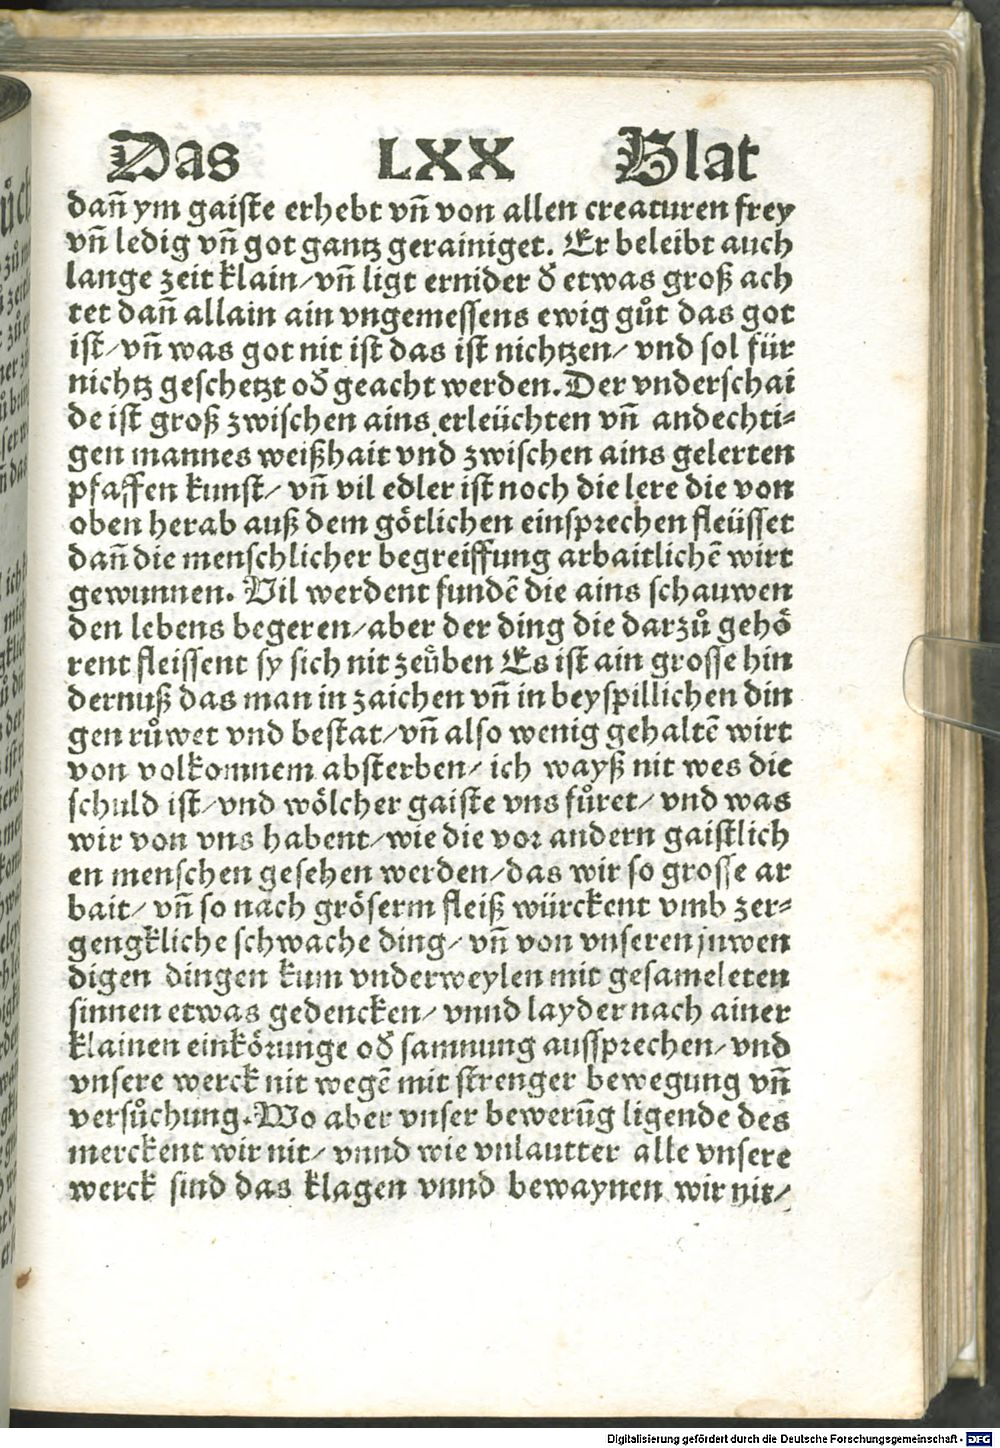 Das LXX Blat
dañ ym gaiste erhebt vñ von allen creaturen frey
vñ ledig vñ got gantz gerainiget. Er beleibt auch
lange zeit klain/ vñ ligt ernider ð etwas groß ach
tet dañ allain ain vngemessens ewig gůt das got
ist/ vñ was got nit ist das ist nichtzen/ vnd sol für
nichtz geschetzt oð geacht werden. Der vnderschai
de ist groß zwischen ains erleüchten vñ andechti-
gen mannes weißhait vnd zwischen ains gelerten
pfaffen kunst/ vñ vil edler ist noch die lere die von
oben herab auß dem götlichen einsprechen fleüsset
dañ die menschlicher begreiffung arbaitlichē wirt
gewunnen. Vil werdent fundē die ains schauwen
den lebens begeren/ aber der ding die darzů gehö
rent fleissent sy sich nit zeüben Es ist ain grosse hin
dernuß das man in zaichen vñ in beyspillichen din
gen růwet vnd bestat/ vñ also wenig gehaltē wirt
von volkomnem absterben/ ich wayß nit wes die
schuld ist/ vnd wölcher gaiste vns fůret/ vnd was
wir von vns habent/ wie die vor andern gaistlich
en menschen gesehen werden/ das wir so grosse ar
bait/ vñ so nach gröserm fleiß würckent vmb zer-
gengkliche schwache ding/ vñ von vnseren jnwen
digen dingen kum vnderweylen mit gesameleten
sinnen etwas gedencken/ vnnd layder nach ainer
klainen einkörunge oð samnung aussprechen/ vnd
vnsere werck nit wegē mit strenger bewegung vñ
versůchung. Wo aber vnser bewerūg ligende des
merckent wir nit/ vnnd wie vnlautter alle vnsere
werck sind das klagen vnnd bewaynen wir nit/
Digitalisierung gefördert durch die Deutsche Forschungsgemeinschaft - DFG